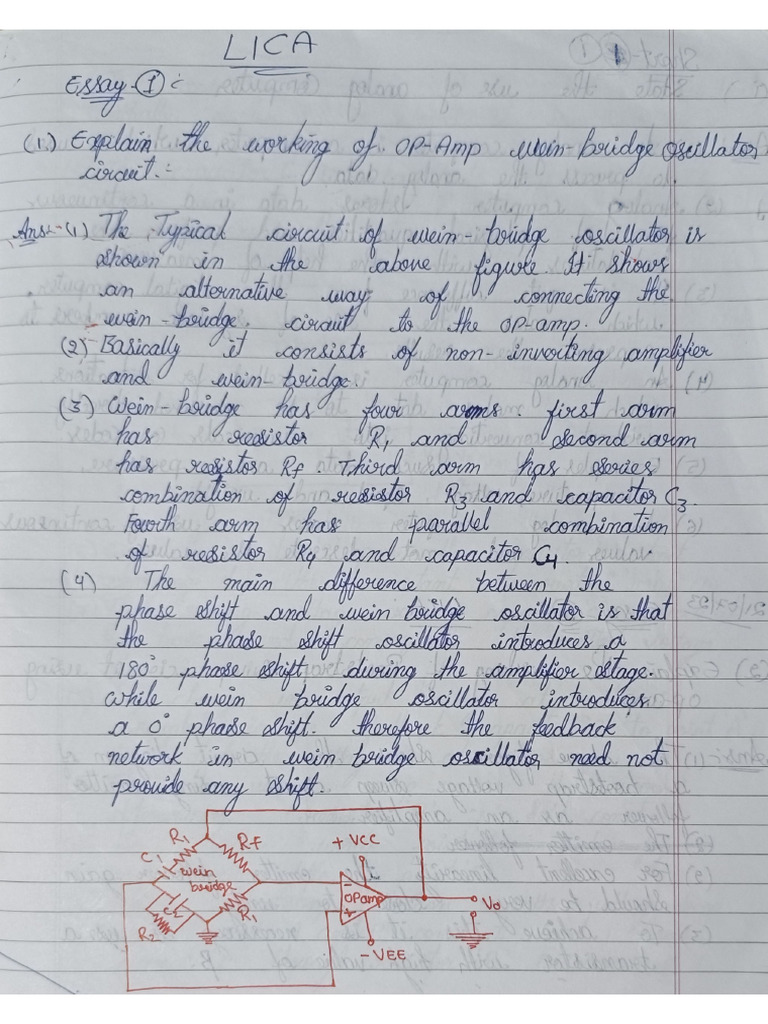 LICA
1
Essay-① :
(1.) Explain the working of OP-Amp wein-bridge oscillator
circuit.:
Ans:-(1) The Typical circuit of wein-bridge oscillator is
shown in the above figure It shows
an alternative way of connecting the
wein-bridge circuit to the op-amp.
(2) Basically it consists of non-inverting amplifier
and wein-bridge.
(3) Wein-bridge has four arms. first arm
has resistor R1 and second arm
has resistor Rf. Third arm has series
combination of resistor R3 and capacitor C3.
Fourth arm has parallel combination
of resistor R4 and capacitor C4.
(4) The main difference between the
phase shift and wein bridge oscillator is that
the phase shift oscillator introduces a
180° phase shift during the amplifier stage.
while wein bridge oscillator introduces
a 0° phase shift. therefore the feedback
network in wein bridge oscillator need not
provide any shift.
R1 Rf +VCC
C1
wein
bridge
OPamp
- +
Vo
R2 R1
-VEE